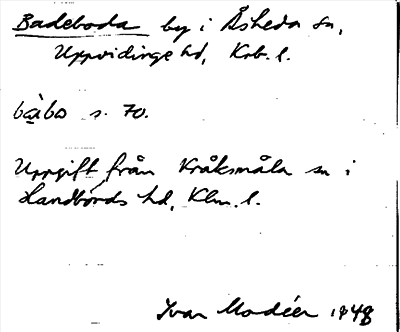 Badeboda by i Åsheda sn,
Uppvidinge hd, Krb. l.
bàbo s. 70.
Uppgift från Kråksmåla sn i
Handbörds hd, Klm. l.
Ivar Modéer 1948